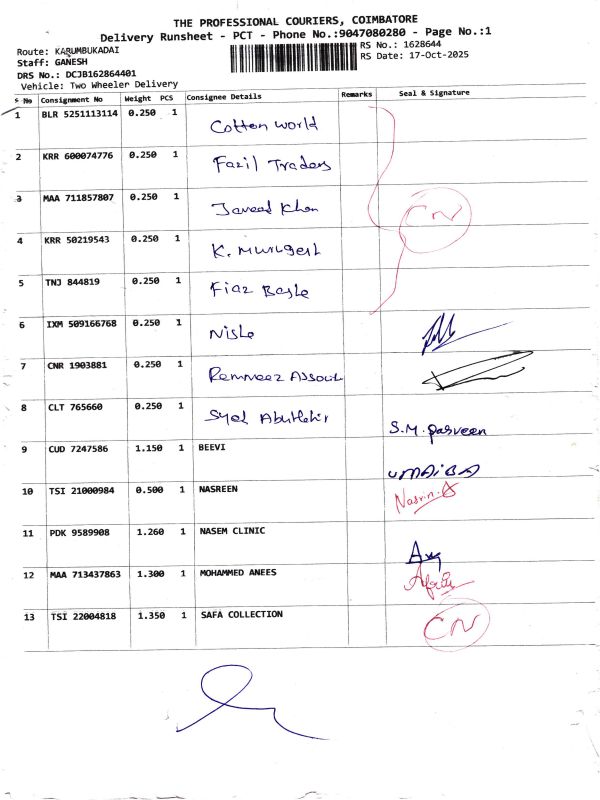 THE PROFESSIONAL COURIERS, COIMBATORE
Delivery Runsheet - PCT - Phone No.:9047080280 - Page No.:1
Route: KARUMBUKADAI
RS No.: 1628644
Staff: GANESH
RS Date: 17-Oct-2025
DRS No.: DCJB162864401
Vehicle: Two Wheeler Delivery
S No Consignment No Weight PCS Consignee Details Remarks Seal & Signature
1 BLR 5251113114 0.250 1 Cotton World
2 KRR 600074776 0.250 1 Fazil Traders
3 MAA 711857807 0.250 1 Javeed Khan
CN
4 KRR 50219543 0.250 1 K. Murugesh
5 TNJ 844819 0.250 1 Fiaz
6 IXM 509166768 0.250 1
7 CNR 1903881 0.250 1
8 CLT 765660 0.250 1 Syed S.M. Parveen
9 CUD 7247586 1.150 1 BEEVI UMAIBA
10 TSI 21000984 0.500 1 NASREEN Nasrin.A
11 PDK 9589908 1.260 1 NASEM CLINIC
12 MAA 713437863 1.300 1 MOHAMMED ANEES
13 TSI 22004818 1.350 1 SAFA COLLECTION CN